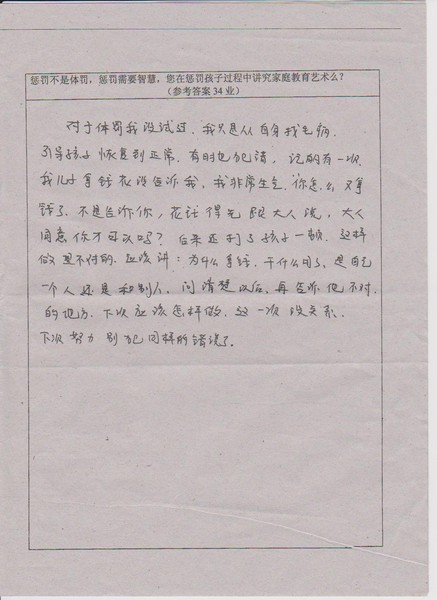 惩罚不是体罚，惩罚需要智慧，您在惩罚孩子过程中讲究家庭教育艺术么？
（参考答案 34 业）
对于体罚我没试过，我只是从自身找毛病，
引导孩子恢复到正常，有时也犯错，记的有一次
我儿子拿钱花没告诉我，我非常生气，你怎么又拿
钱了，不是告诉你，花钱得先跟大人说，大人
同意你才可以吗？后来还打了孩子一顿，这样
做是不对的，应该讲：为什么拿钱，干什么用了，是自己
一个人还是和别人，问清楚以后，再告诉他不对
的地方，下次应该怎样做，这一次没关系，
下次努力别犯同样的错误了。